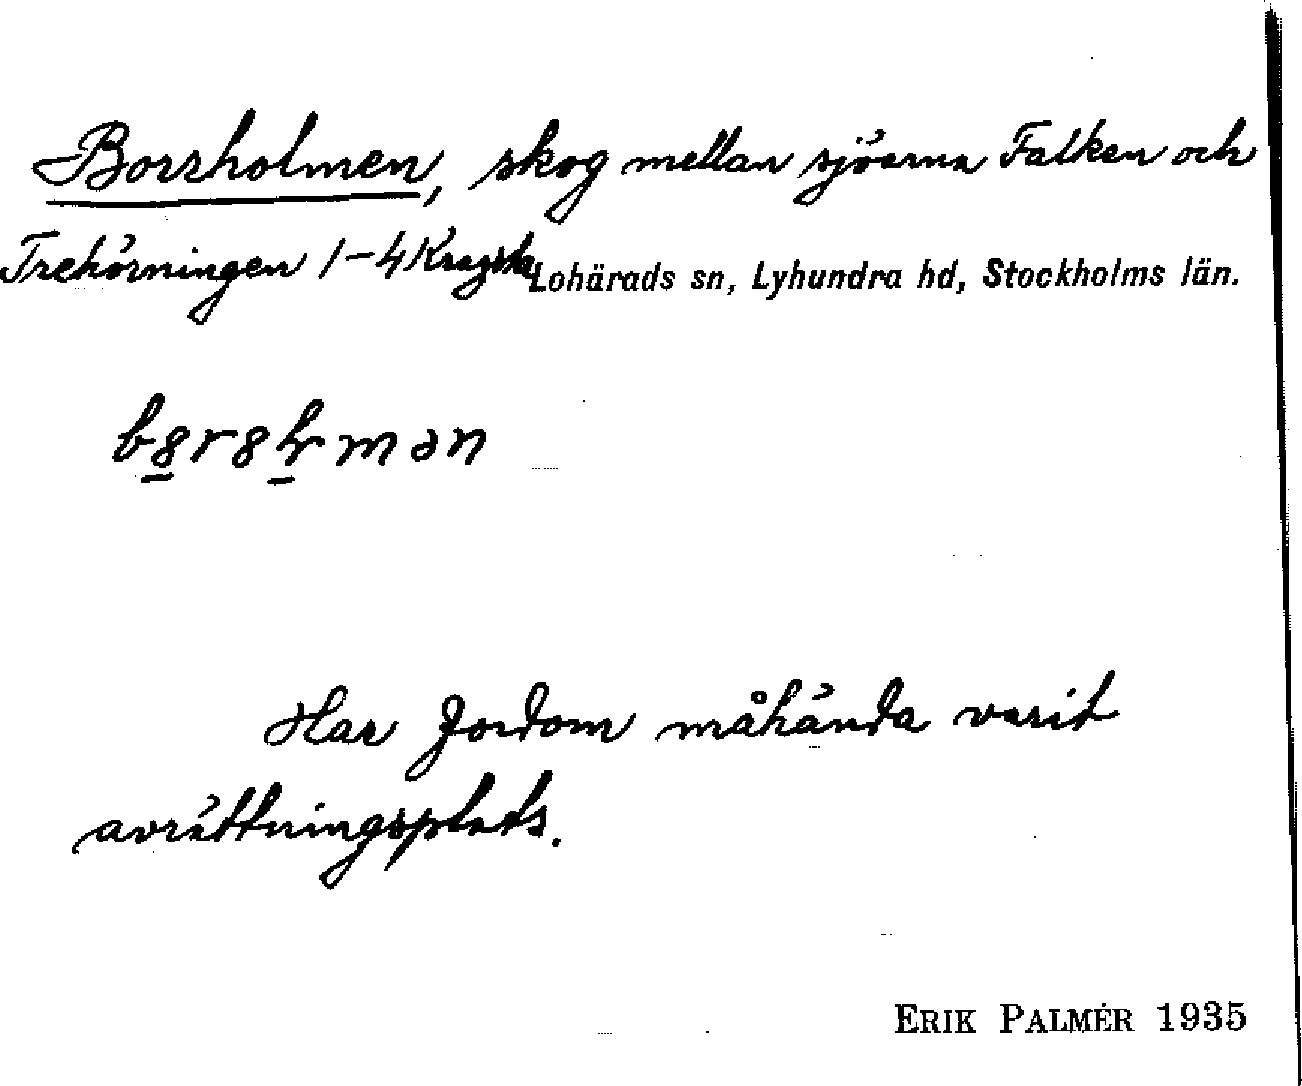 Borrholmen, skog mellan sjöarna Falken och
Trehörningen 1-4 Kragsta Lohärads sn, Lyhundra hd, Stockholms län.
Har fordom måhända varit
avrättningsplats.
ERIK PALMÉR 1935